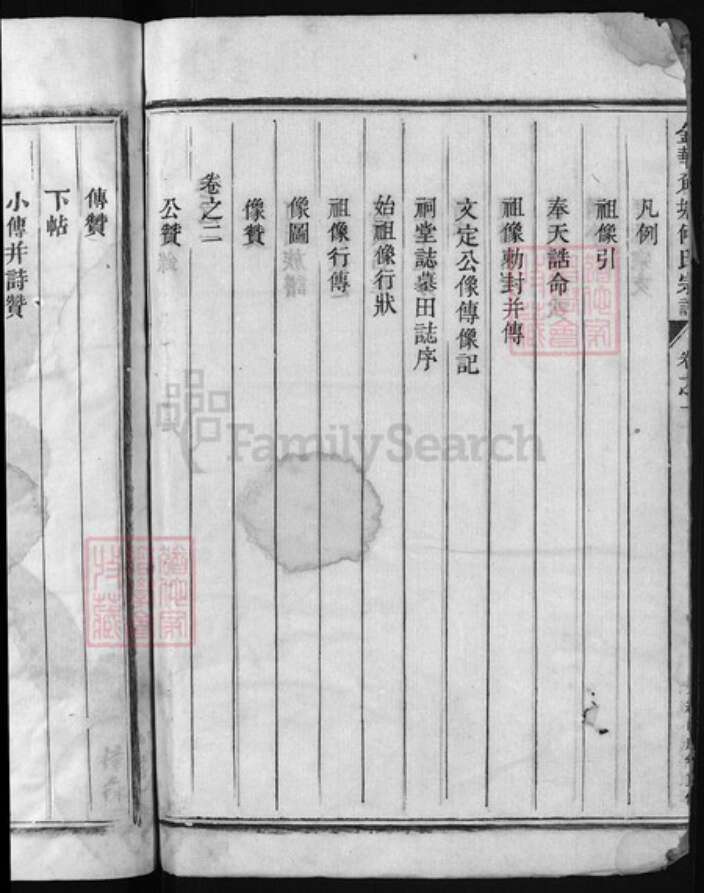 凡例
祖像引
奉天誥命
祖像勅封并傳
文定公像傳像記
祠堂誌墓田誌序
始祖像行狀
祖像行傳
像圖
像贊
卷之二
公贊
傳贊
下帖
小傳并詩贊
FamilySearch